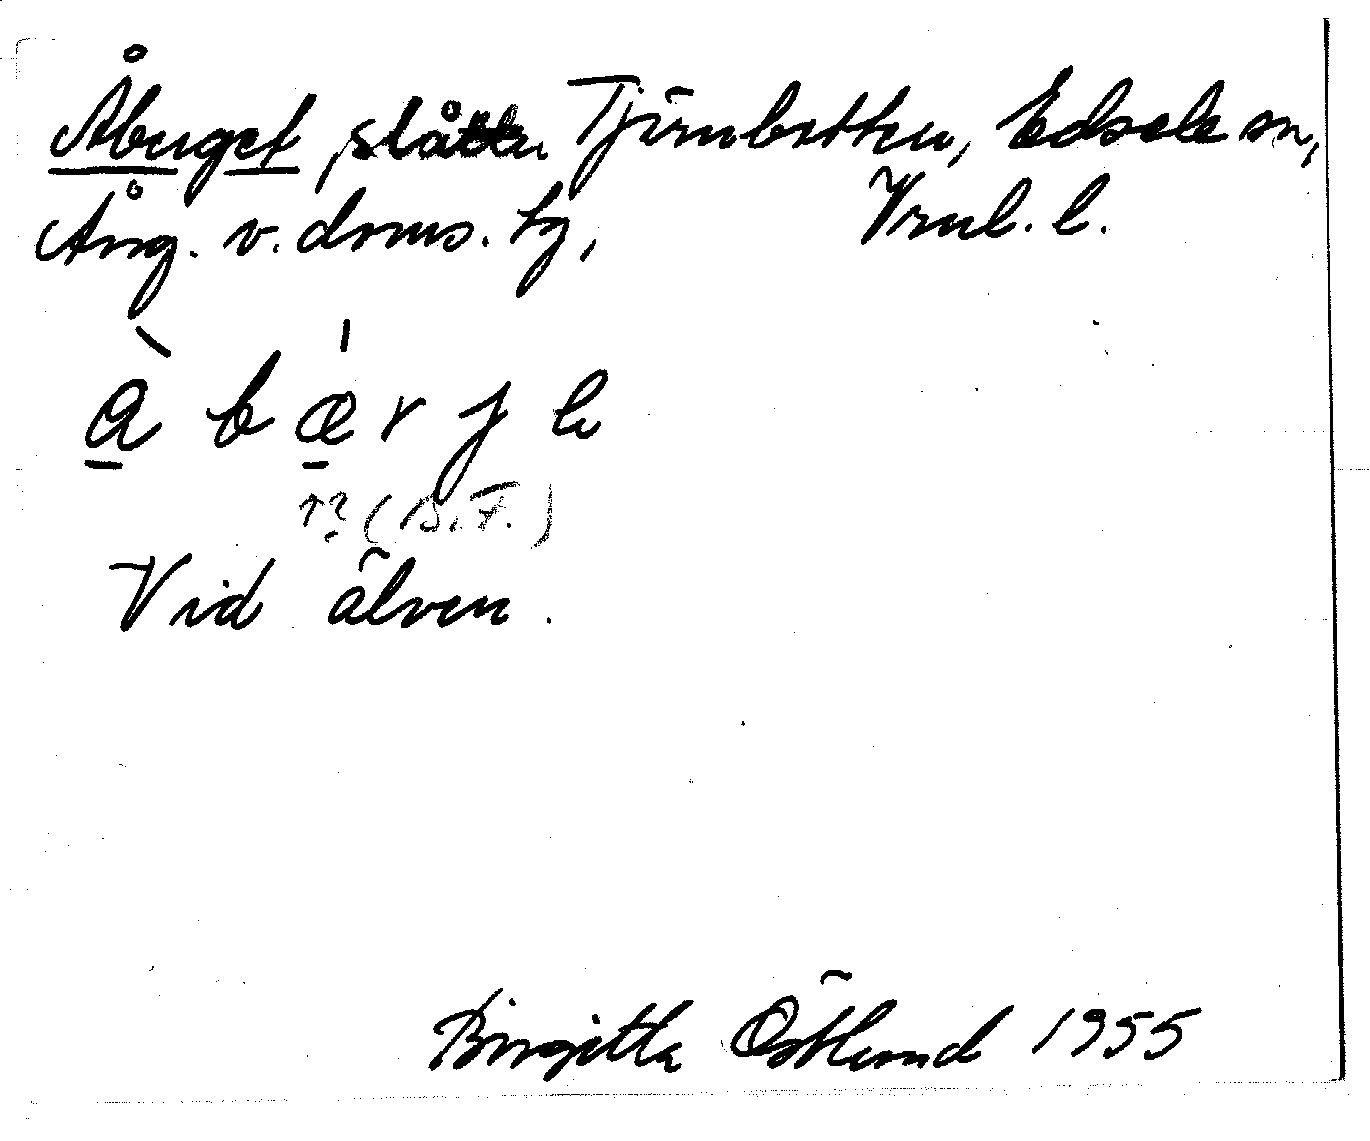 Åbuget, slåtter Tjärnbotten, Edsele sn,
Ång. v. doms. tg, Vrml. l.
à b æ r j e
↑? (B. F.)
Vid älven.
Birgitta Östlund 1955